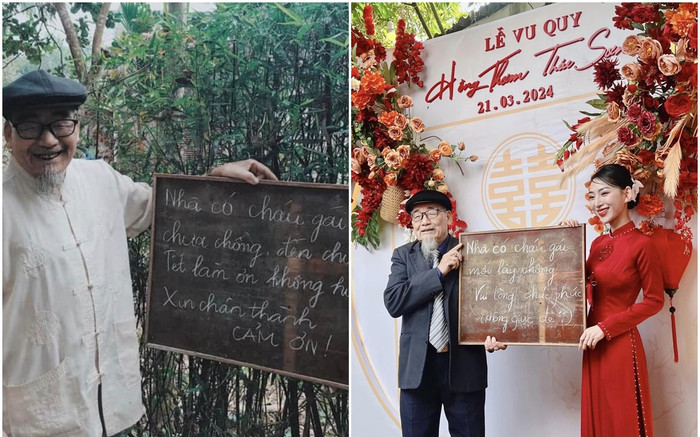 Nhà có cháu gái
chưa chồng, đến chú
Tết làm ơn không hỏ
Xin chân thành
CẢM ƠN!
LỄ VU QUY
Hồng Thơm Thái Sơn
21.03.2024
Nhà có cháu gái
mới lấy chồng
Vui lòng chúc phúc
(không giục đẻ!)